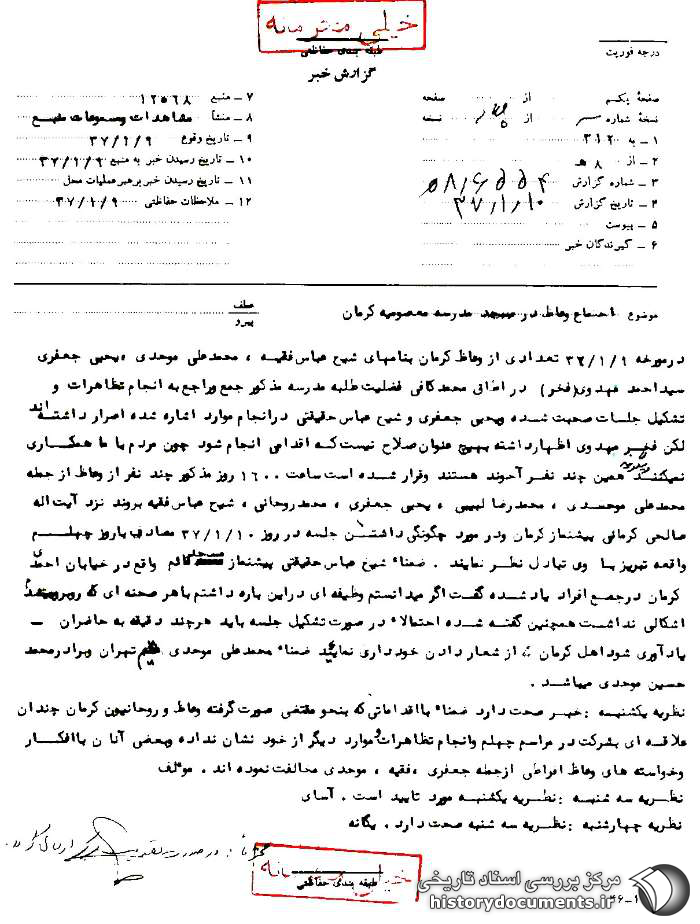 خیلی محرمانه
طبقه بندی حفاظتی
گزارش خبر
درجه فوریت
صفحهٔ یکم از صفحه
نسخهٔ شماره از نسخه
۱ – به ۳۱۲
۲ – از ۸ هـ
۳ – شماره گزارش
۴ – تاریخ گزارش ۳۷/۱/۱۰
۵ – پیوست
۶ – گیرندگان خبر
۷ – منبع ۱۲۵۶۸
۸ – منشأ مشاهدات ومسموعات منبع
۹ – تاریخ وقوع ۳۷/۱/۹
۱۰ – تاریخ رسیدن خبر به منبع ۳۷/۱/۹
۱۱ – تاریخ رسیدن خبر برهبر عملیات محل
۱۲ – ملاحظات حفاظتی ۳۷/۱/۹
موضوع اجتماع وعاظ در مسجد مدرسه معصومیه کرمان
عطف
پیرو
درمورخه ۳۷/۱/۹ تعدادی از وعاظ کرمان بنامهای شیخ عباس فقیه ، محمدعلی موحدی ،یحیی جعفری
سیداحمد مهدوی (فخر) در اطاق محمدکافی فضلیت طلبه مدرسه مذکور جمع وراجع به انجام تظاهرات و
تشکیل جلسات صحبت شده ویحیی جعفری و شیخ عباس حقیقتی درانجام موارد اشاره شده اصرار داشته اند
لکن فخر مهدوی اظهارداشته بهیچ عنوان صلاح نیست که اقدامی انجام شود چون مردم با ما همکاری
نمیکنند همین چند نفر آخوند هستند وقرار شده است ساعت ۱۶۰۰ روز مذکور چند نفر از وعاظ از جمله
محمدعلی موحدی ، محمدرضا لبیبی ، یحیی جعفری ، محمدروحانی ، شیخ عباس فقیه بروند نزد آیت اله
صالحی کرمانی پیشنماز کرمان ودر مورد چگونگی داشتن جلسه در روز ۳۷/۱/۱۰ مصادف باروز چهلم
واقعه تبریز با وی تبادل نظر نمایند . ضمناً شیخ عباس حقیقتی پیشنماز مسجد قائم واقع در خیابان احمدی
کرمان درجمع افراد یاد شده گفت اگر میدانستم وظیفه ای در این باره داشتم باهر صحنه ای که روبرو میشد
اشکالی نداشت همچنین گفته شده احتمالاً در صورت تشکیل جلسه باید هرچند دقیقه به حاضران –
یادآوری شود اهل کرمان از شعار دادن خودداری نمایند ضمناً محمدعلی موحدی مقیم تهران وبرادر محمد
حسین موحدی میباشد .
نظریه یکشنبه : خبر صحت دارد ضمناً بااقداماتی که بنحو مقتضی صورت گرفته وعاظ و روحانیون کرمان چندان
علاقه ای بشرکت در مراسم چهلم وانجام تظاهرات و موارد دیگر از خود نشان نداده وبعضی آنان باافکار
وخواسته های وعاظ افراطی ازجمله جعفری ،فقیه ، موحدی مخالفت نموده اند . موئلف
نظریه سه شنبه : نظریه یکشنبه مورد تایید است . آسای
نظریه چهارشنبه : نظریه سه شنبه صحت دارد . یگانه
خیلی محرمانه
طبقه بندی حفاظتی
مرکز بررسی اسناد تاریخی
historydocuments.ir